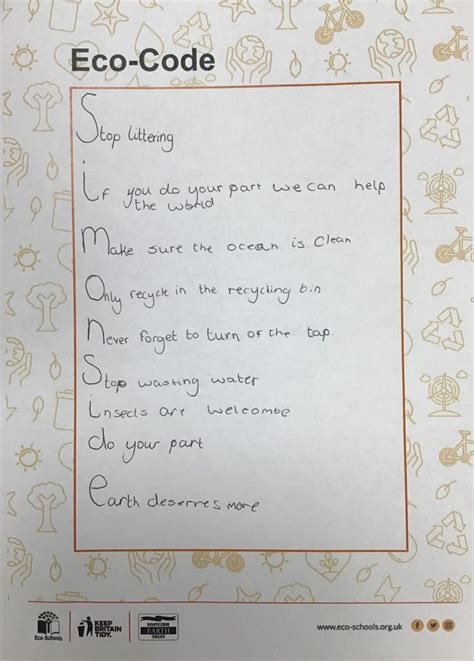 Eco-Code
Stop littering
if you do your part we can help
the world
Make sure the ocean is clean
Only recycle in the recycling bin
never forget to turn of the tap
Stop wasting water
insects are welcombe
do your part
earth deserres more
Eco-Schools
KEEP
BRITAIN
TIDY.
POSTCODE
EARTH
TRUST
www.eco-schools.org.uk